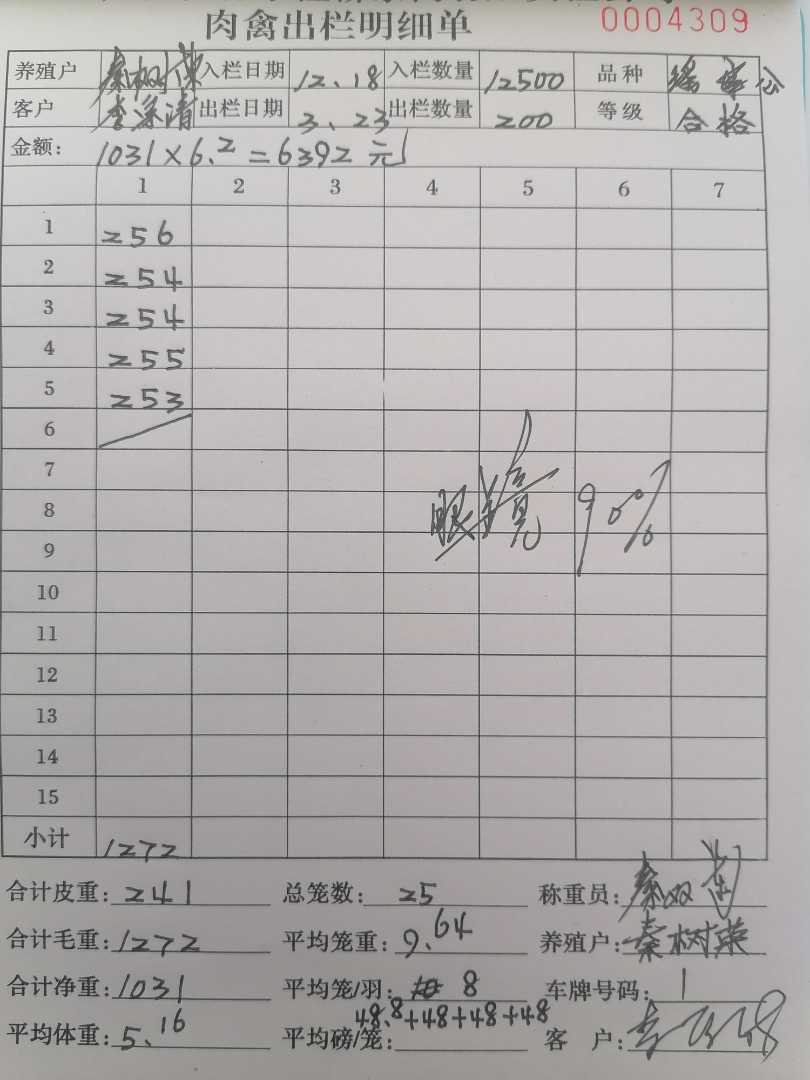 肉禽出栏明细单 0004309
养殖户 秦树荣 入栏日期 12、18 入栏数量 12500 品种
客户 李 清 出栏日期 3、23 出栏数量 200 等级 合格
金额: 1031×6.2=6392元
1 2 3 4 5 6 7
1 256
2 254
3 254
4 255
5 253
6
7
8 眼 亮 90%
9
10
11
12
13
14
15
小计 1272
合计皮重: 241 总笼数: 25 称重员: 秦双
合计毛重: 1272 平均笼重: 9.64 养殖户: 秦树荣
合计净重: 1031 平均笼/羽: 8 车牌号码: 1
平均体重: 5.16 平均磅/笼: 48.8+48+48+48 客 户: 李